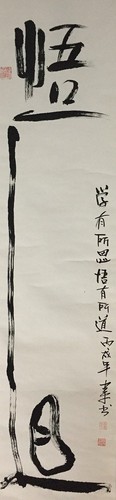 悟道
学有所思悟有所道丙戌年